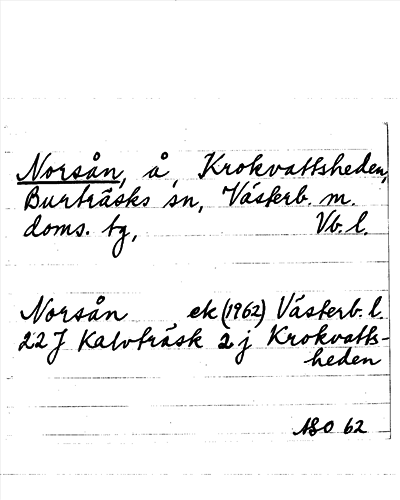 Norsån, å, Krokvattsheden,
Burträsks sn, Västerb. m.
doms. tg, Vb. l.
Norsån ek (1962) Västerb. l.
22 J Kalvträsk 2 j Krokvatts-
heden
ABO 62